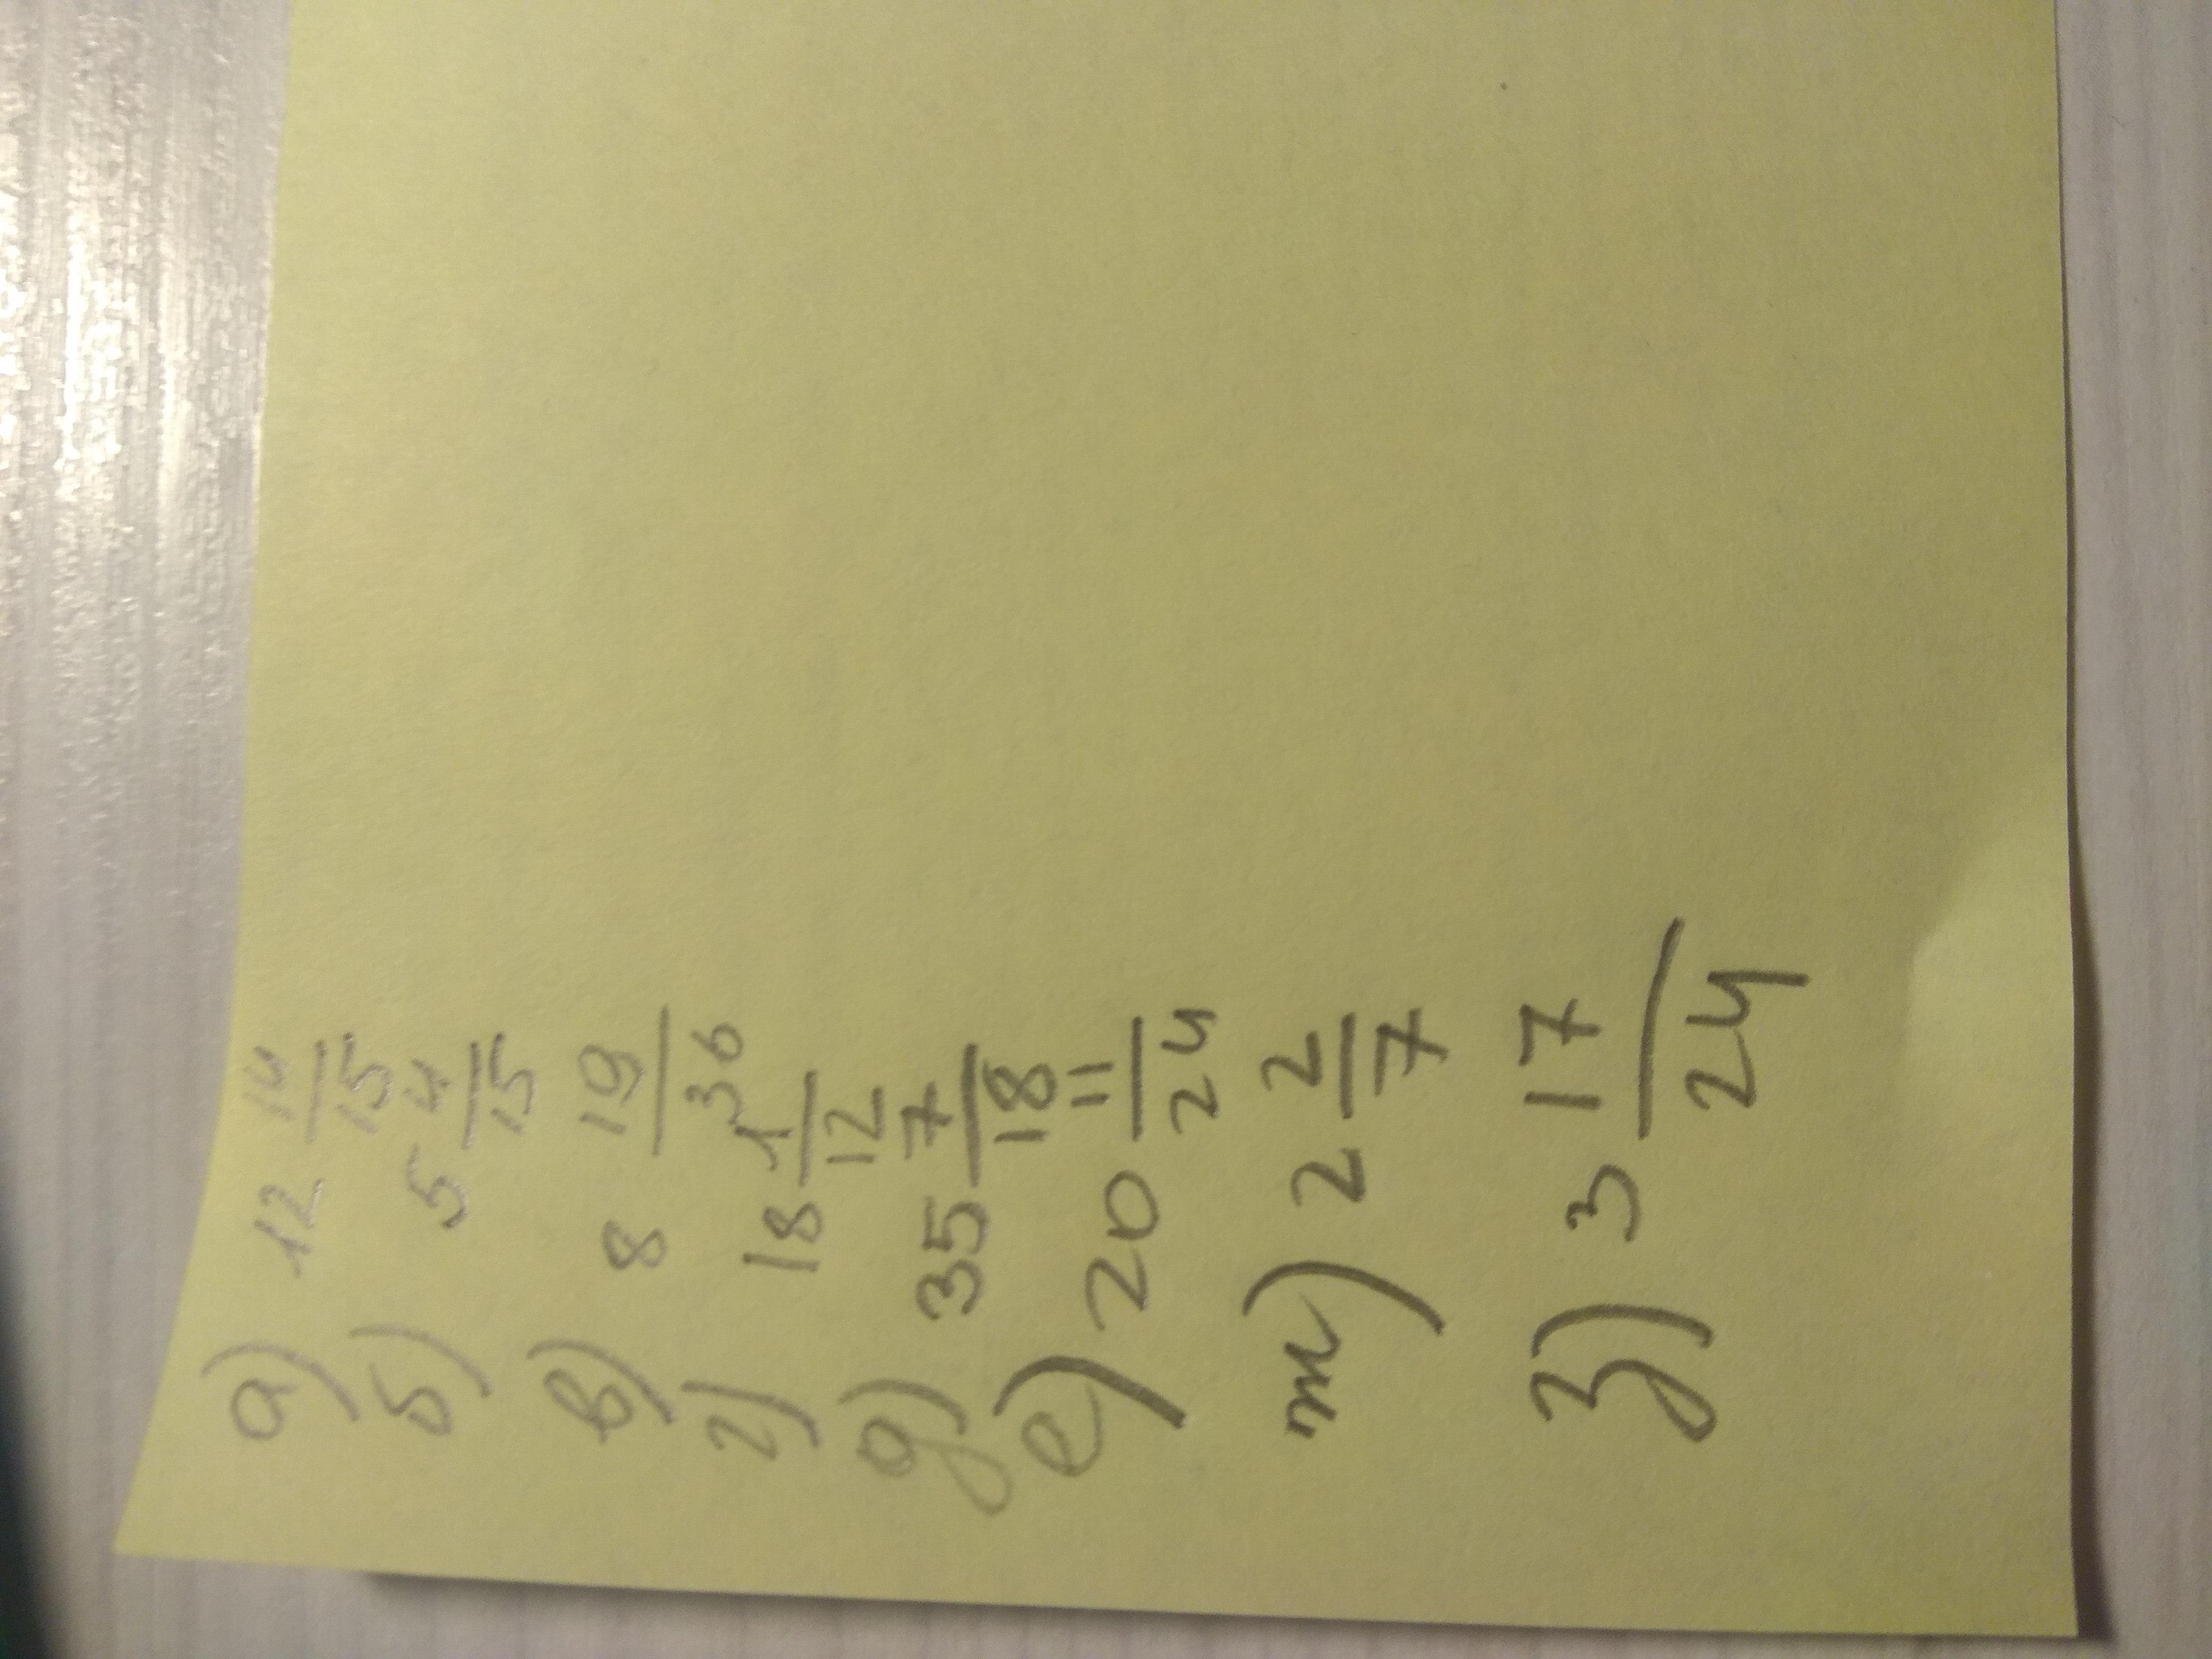 а) 12 14/15
б) 5 4/15
в) 8 19/36
г) 18 1/12
д) 35 7/18
е) 20 11/24
ж) 2 2/7
з) 3 17/24